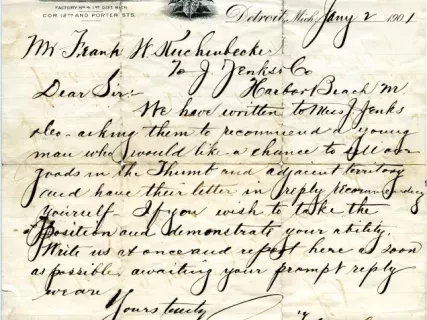 FACTORY No 4, 1ST DIST. MICH.
COR. 12TH AND PORTER STS.
Detroit, Mich., Jany 2 1901
Mr Frank W. Kuchenbecker
To J. Jenks & Co
Harbor Beach M
Dear Sir:
We have written to Mess J. Jenks
& Co - asking them to recommend a young
man who would like a chance to sell our
goods in the Thumb and adjacent territory
and have their letter in reply recommending
yourself - If you wish to take the
position and demonstrate your ability.
Write us at once and report here as soon
as possible, awaiting your prompt reply
we are
Yours truly